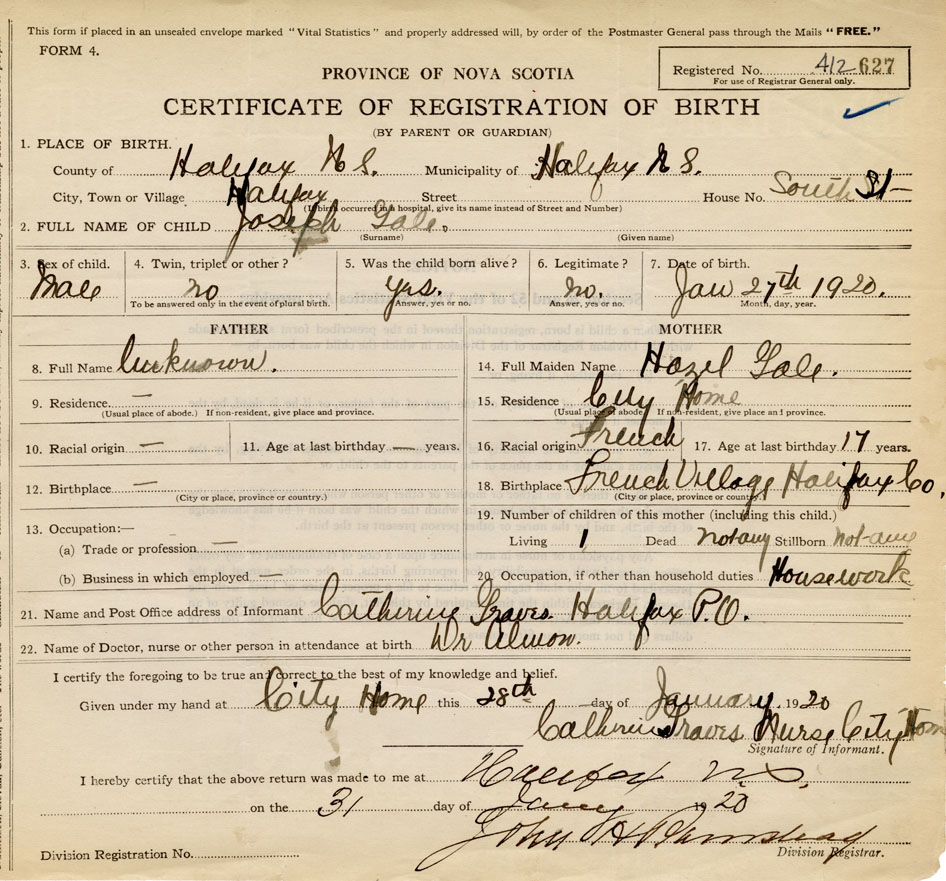 This form if placed in an unsealed envelope marked "Vital Statistics" and properly addressed will, by order of the Postmaster General pass through the Mails "FREE."
FORM 4.
Registered No. 412 627
For use of Registrar General only.
PROVINCE OF NOVA SCOTIA
CERTIFICATE OF REGISTRATION OF BIRTH
(BY PARENT OR GUARDIAN)
1. PLACE OF BIRTH.
County of Halifax N S. Municipality of Halifax N S.
City, Town or Village Halifax Street House No. South St
(If birth occurred in a hospital, give its name instead of Street and Number)
2. FULL NAME OF CHILD Joseph Gale.
(Surname) (Given name)
3. Sex of child. 4. Twin, triplet or other? 5. Was the child born alive? 6. Legitimate? 7. Date of birth.
Male no yes. no. Jan 27th 1920.
To be answered only in the event of plural birth. Answer, yes or no. Answer, yes or no. Month, day, year.
FATHER
8. Full Name Unknown.
9. Residence. —
(Usual place of abode.) If non-resident, give place and province.
10. Racial origin — 11. Age at last birthday — years.
12. Birthplace —
(City or place, province or country.)
13. Occupation:—
(a) Trade or profession —
(b) Business in which employed —
MOTHER
14. Full Maiden Name Hazel Gale.
15. Residence City Home
(Usual place of abode) If non-resident, give place and province.
16. Racial origin French 17. Age at last birthday 17 years.
18. Birthplace French Village Halifax Co.
(City or place, province or country.)
19. Number of children of this mother (including this child.)
Living 1 Dead not any Stillborn not any
20. Occupation, if other than household duties Housework
21. Name and Post Office address of Informant Catherine Graves. Halifax P.O.
22. Name of Doctor, nurse or other person in attendance at birth Dr Almon.
I certify the foregoing to be true and correct to the best of my knowledge and belief.
Given under my hand at City Home this 28th day of January. 1920
Catherine Graves Nurse City Home
Signature of Informant.
I hereby certify that the above return was made to me at Halifax N S,
on the 31 day of Jany 1920
John A
Division Registration No. Division Registrar.